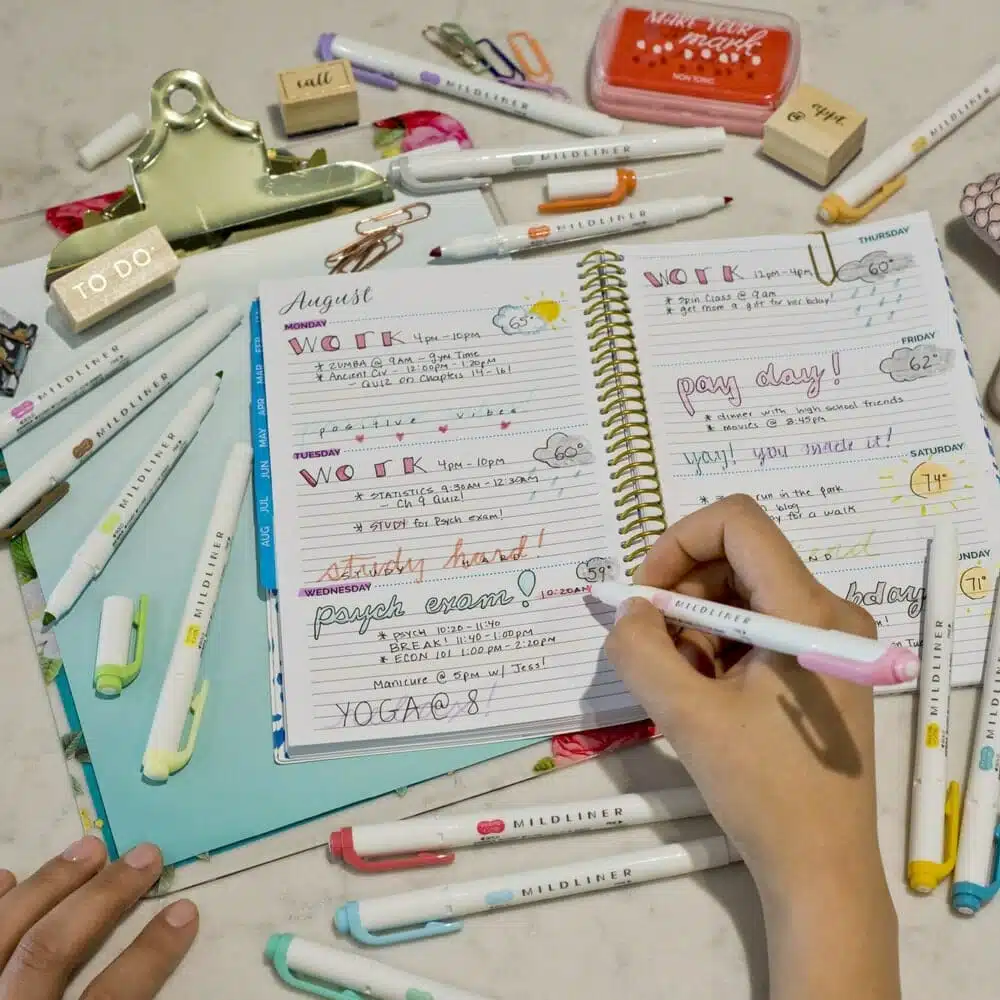 call
MAKE YOUR
mark
NON TOXIC
@ appt.
TO DO
MILDLINER
MILDLINER
MILDLINER
MILDLINER
MILDLINER
MILDLINER
MILDLINER
MILDLINER
August
MONDAY
WORK 4pm - 10pm
65°
* ZUMBA @ 9AM - Gym Time
* Ancient Civ - 12:00pm - 1:20pm
- QUIZ on Chapters 14 - 16!
positive vibes
TUESDAY
WORK 4pm - 10pm
60°
* STATISTICS 9:30AM - 12:30AM
- Ch 9 Quiz!
* STUDY for Psych exam!
study hard!
WEDNESDAY
59°
psych exam! 10:20AM
* PSYCH 10:20 - 11:40
BREAK! 11:40 - 1:00pm
* ECON 101 1:00pm - 2:20pm
Manicure @ 5pm w/ Jess!
YOGA @ 8
FEB
MAR
APR
MAY
JUN
JUL
AUG
THURSDAY
WORK 12pm - 4pm
60°
* Spin Class @ 9am
* get mom a gift for her bday!
FRIDAY
62°
pay day!
* dinner with high school friends
* movies @ 8:45pm
yay! you made it!
SATURDAY
74°
run in the park
blog
for a walk
UNDAY
71°
bday
MILDLINER
MILDLINER
MILDLINER
MILDLINER
MILDLINER